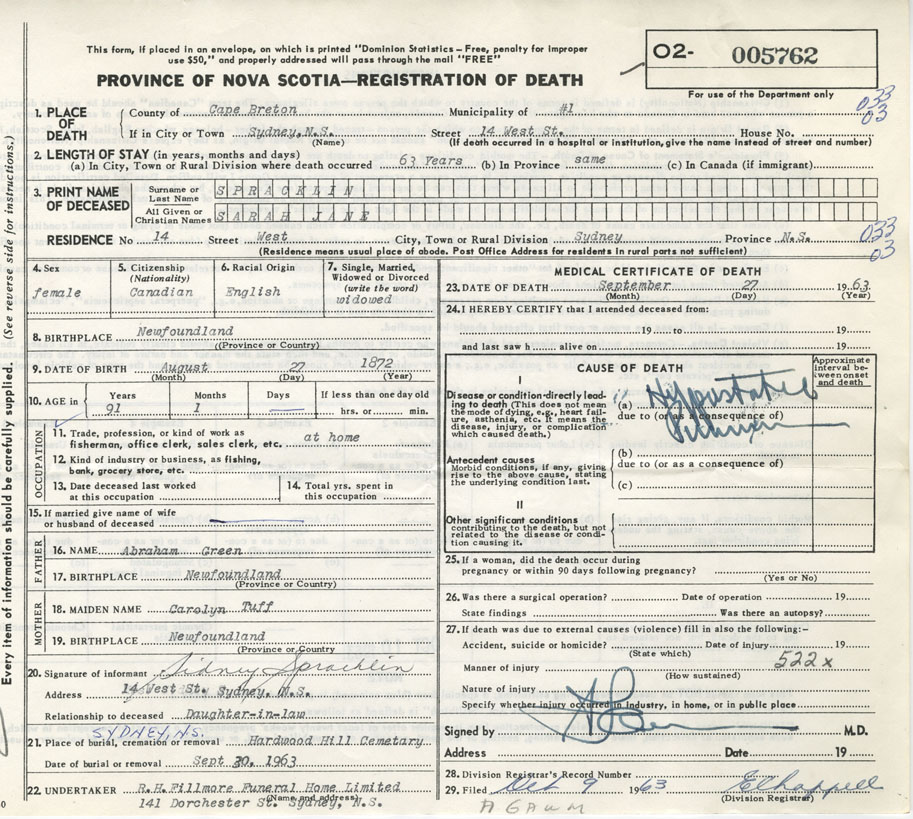 This form, if placed in an envelope, on which is printed "Dominion Statistics – Free, penalty for improper
use $50," and properly addressed will pass through the mail "FREE"
PROVINCE OF NOVA SCOTIA—REGISTRATION OF DEATH
O2- 005762
For use of the Department only
033
03
1. PLACE OF DEATH
County of Cape Breton Municipality of #1
If in City or Town Sydney, N.S. Street 14 West St. House No.
(Name) (If death occurred in a hospital or institution, give the name instead of street and number)
2. LENGTH OF STAY (in years, months and days)
(a) In City, Town or Rural Division where death occurred 63 Years (b) In Province same (c) In Canada (if immigrant)
3. PRINT NAME OF DECEASED
Surname or Last Name SPRACKLIN
All Given or Christian Names SARAH JANE
RESIDENCE No 14 Street West City, Town or Rural Division Sydney Province N.S.
(Residence means usual place of abode. Post Office Address for residents in rural parts not sufficient)
033
03
4. Sex
female
5. Citizenship
(Nationality)
Canadian
6. Racial Origin
English
7. Single, Married,
Widowed or Divorced
(write the word)
widowed
8. BIRTHPLACE Newfoundland
((Province or Country)
9. DATE OF BIRTH August 27 1872
(Month) (Day) (Year)
10. AGE in
Years Months Days If less than one day old
91 1 hrs. or min.
OCCUPATION
11. Trade, profession, or kind of work as
fisherman, office clerk, sales clerk, etc. at home
12. Kind of industry or business, as fishing,
bank, grocery store, etc.
13. Date deceased last worked
at this occupation
14. Total yrs. spent in
this occupation
15. If married give name of wife
or husband of deceased
FATHER
16. NAME Abraham Green
17. BIRTHPLACE Newfoundland
(Province or Country)
MOTHER
18. MAIDEN NAME Carolyn Tuff
19. BIRTHPLACE Newfoundland
(Province or Country
20. Signature of informant Sidney Spracklin
Address 14 West St. Sydney, N.S.
Relationship to deceased Daughter-in-law
SYDNEY, N.S.
21. Place of burial, cremation or removal Hardwood Hill Cemetary
Date of burial or removal Sept 30, 1963
22. UNDERTAKER R.H. Fillmore Funeral Home Limited
(Name and address)
141 Dorchester St. Sydney, N.S.
MEDICAL CERTIFICATE OF DEATH
23. DATE OF DEATH September 27 19 63
(Month) (Day) (Year)
24. I HEREBY CERTIFY that I attended deceased from:
19 to 19
and last saw h alive on 19
CAUSE OF DEATH
Approximate
interval be-
tween onset
and death
I
Disease or condition directly lead-
ing to death (This does not mean
the mode of dying, e.g., heart fail-
ure, asthenia, etc. It means the
disease, injury, or complication
which caused death.)
(a) Hypostatic
due to (or as a consequence of)
Antecedent causes
Morbid conditions, if any, giving
rise to the above cause, stating
the underlying condition last.
(b)
due to (or as a consequence of)
(c)
II
Other significant conditions
contributing to the death, but not
related to the disease or condi-
tion causing it.
25. If a woman, did the death occur during
pregnancy or within 90 days following pregnancy?
(Yes or No)
26. Was there a surgical operation? Date of operation 19
State findings Was there an autopsy?
27. If death was due to external causes (violence) fill in also the following:–
Accident, suicide or homicide? Date of injury 19
(State which)
522 x
Manner of injury
(How sustained)
Nature of injury
Specify whether injury occurred in industry, in home, or in public place
Signed by M.D.
Address Date 19
28. Division Registrar's Record Number
29. Filed Oct 9 1963
(Division Registrar)
Every item of information should be carefully supplied. (See reverse side for instructions.)